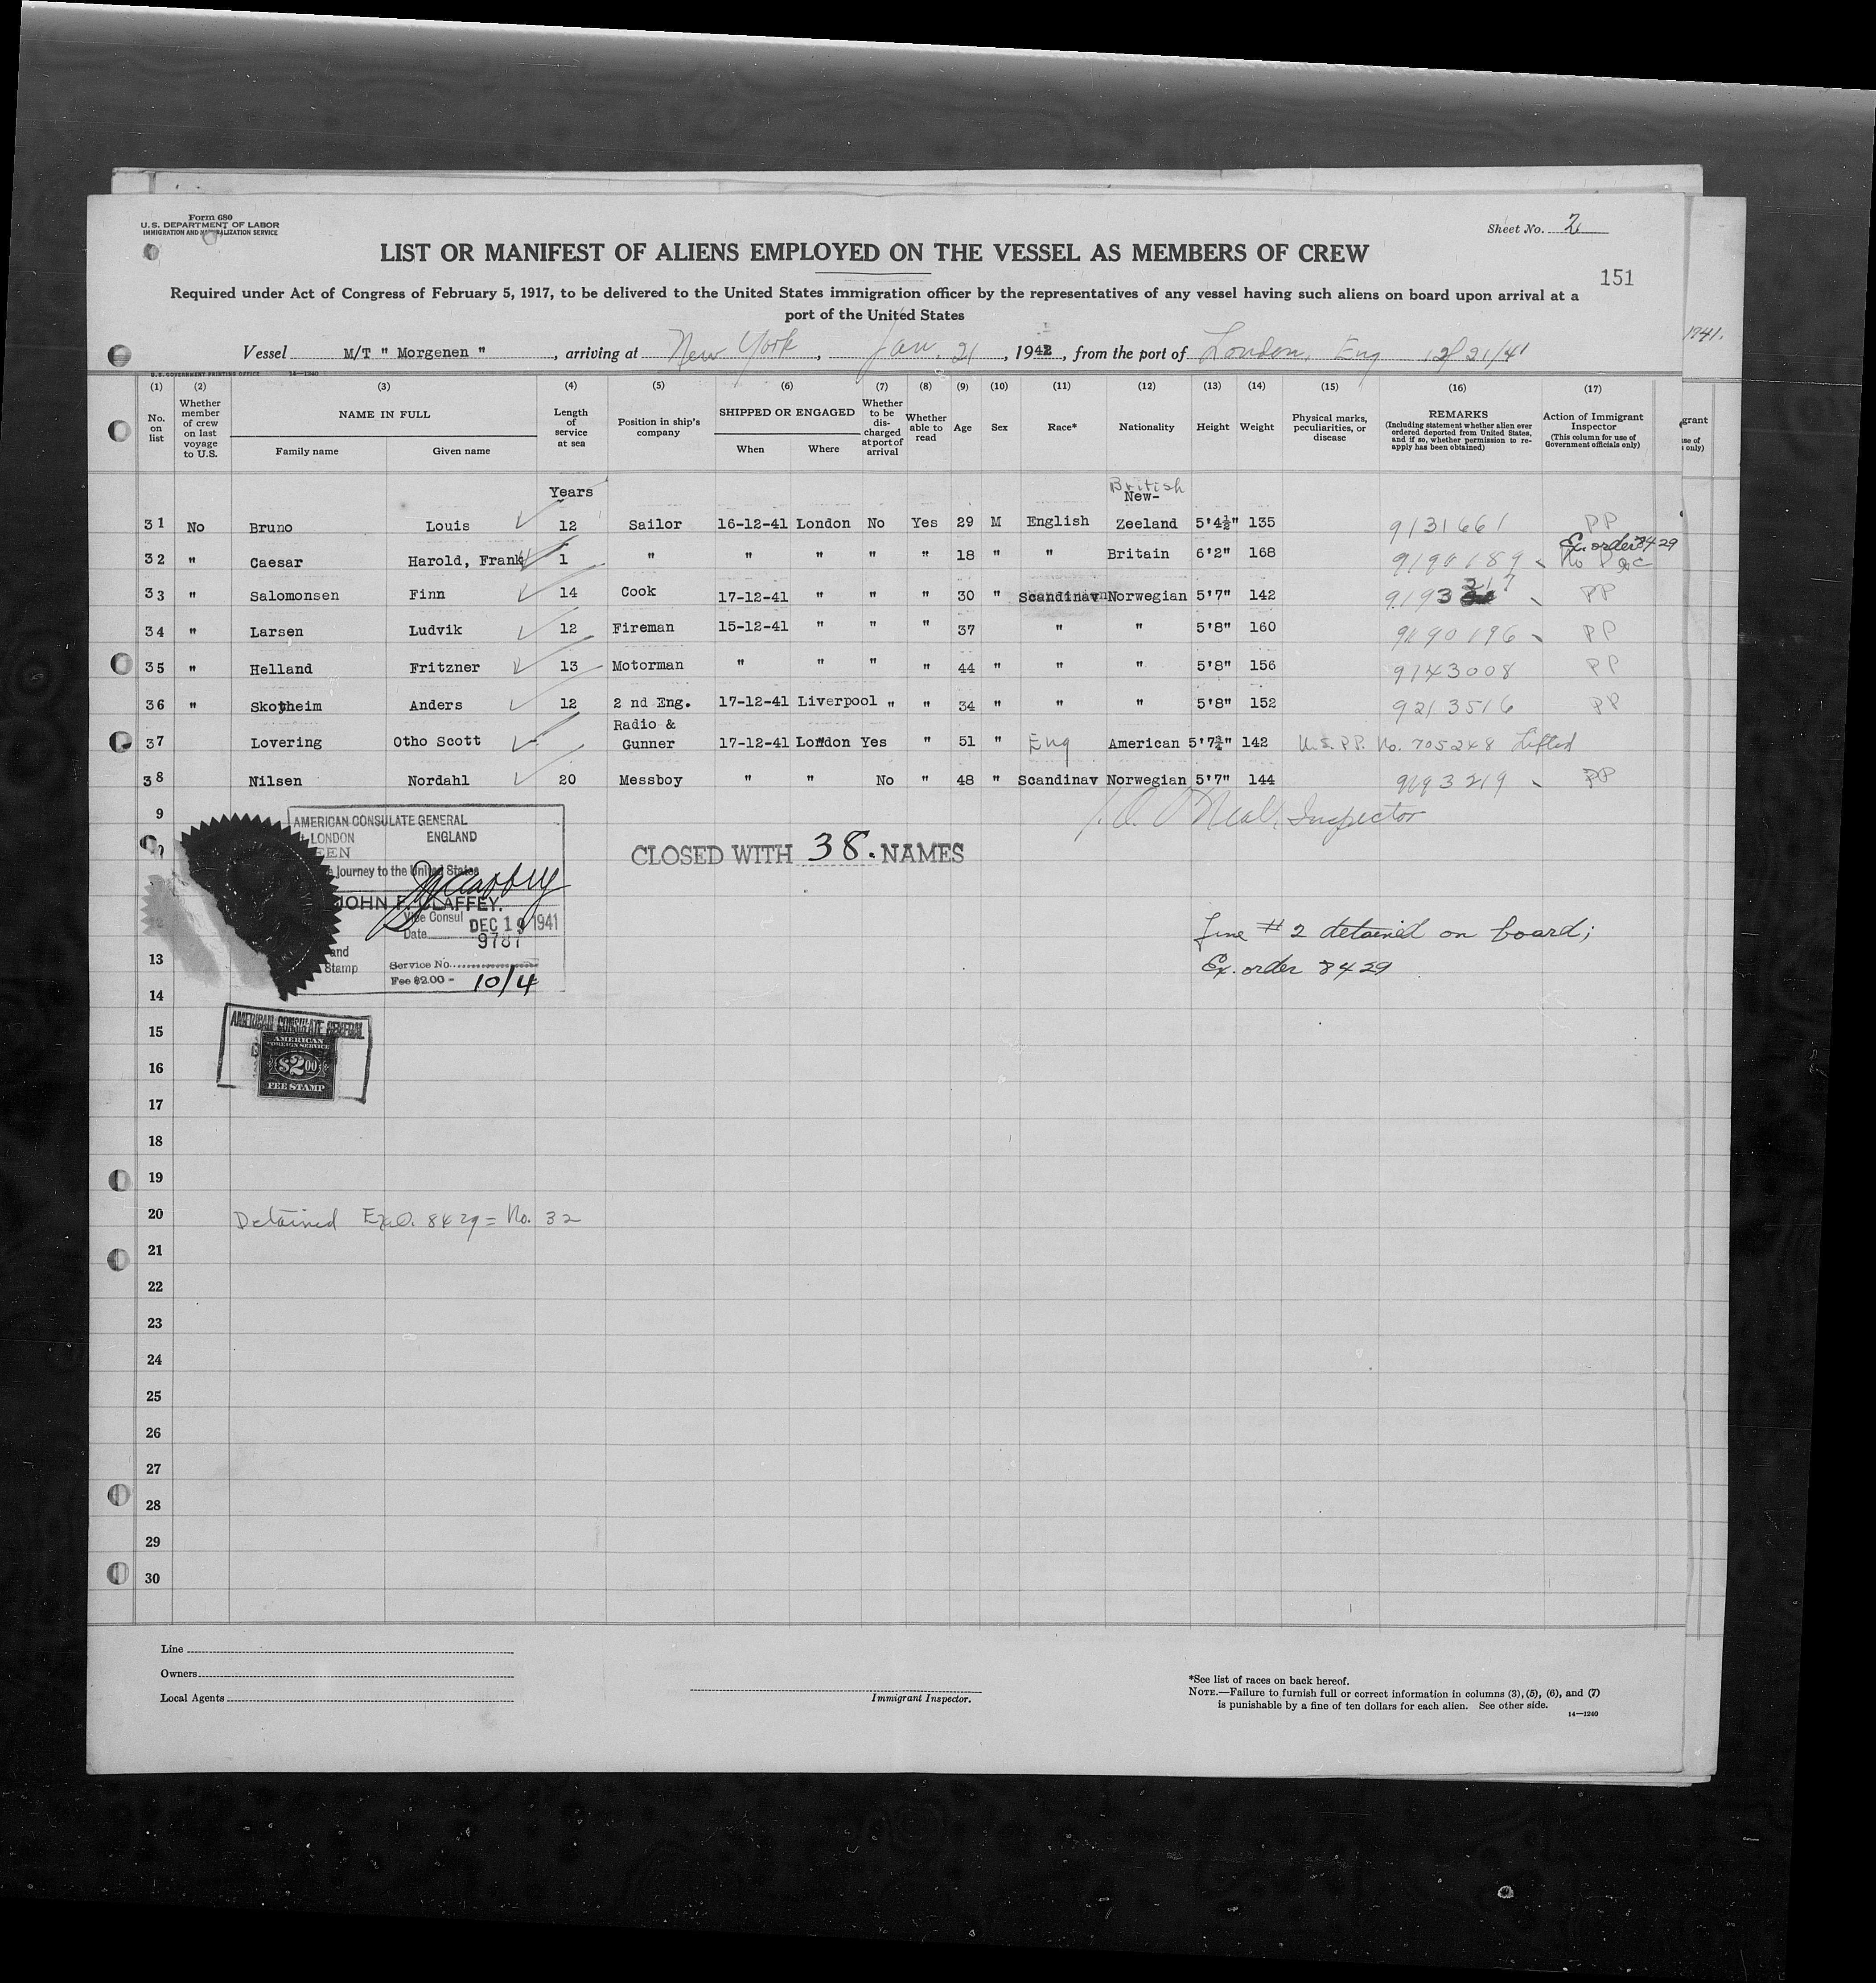 Form 680
U. S. DEPARTMENT OF LABOR
IMMIGRATION AND NATURALIZATION SERVICE
Sheet No. 2
LIST OR MANIFEST OF ALIENS EMPLOYED ON THE VESSEL AS MEMBERS OF CREW
151
Required under Act of Congress of February 5, 1917, to be delivered to the United States immigration officer by the representatives of any vessel having such aliens on board upon arrival at a
port of the United States
1941.
Vessel M/T " Morgenen " , arriving at New York , Jan. 21 , 1942 , from the port of London, Eng 12/21/41
U. S. GOVERNMENT PRINTING OFFICE 14—1240
(1) (2) (3) (4) (5) (6) (7) (8) (9) (10) (11) (12) (13) (14) (15) (16) (17)
No. on list
Whether member of crew on last voyage to U.S.
NAME IN FULL
Family name Given name
Length of service at sea
Position in ship's company
SHIPPED OR ENGAGED
When Where
Whether to be discharged at port of arrival
Whether able to read
Age
Sex
Race*
Nationality
Height
Weight
Physical marks, peculiarities, or disease
REMARKS
(Including statement whether alien ever ordered deported from United States, and if so, whether permission to reapply has been obtained)
Action of Immigrant Inspector
(This column for use of Government officials only)
grant
use of
only)
Years British
New-
31 No Bruno Louis 12 Sailor 16-12-41 London No Yes 29 M English Zeeland 5'4½" 135 9131661 PP
Ex. order 8429
32 " Caesar Harold, Frank 1 " " " " " 18 " " Britain 6'2" 168 9190189 No
33 " Salomonsen Finn 14 Cook 17-12-41 " " " 30 " Scandinav Norwegian 5'7" 142 9193217 PP
34 " Larsen Ludvik 12 Fireman 15-12-41 " " " 37 " " 5'8" 160 9190196 PP
35 " Helland Fritzner 13 Motorman " " " " 44 " " " 5'8" 156 9143008 PP
36 " Skotheim Anders 12 2 nd Eng. 17-12-41 Liverpool " " 34 " " " 5'8" 152 9213516 PP
Radio &
37 Lovering Otho Scott Gunner 17-12-41 London Yes " 51 " Eng American 5'7¾" 142 U.S. PP. No. 705248 Lifted
38 Nilsen Nordahl 20 Messboy " " No " 48 " Scandinav Norwegian 5'7" 144 9193219 PP
O'Neal, Inspector
9
AMERICAN CONSULATE GENERAL
LONDON ENGLAND
Journey to the United States
JOHN F. CLAFFEY.
Vice Consul
Date DEC 19 1941
9787
and
Stamp
Service No.
Fee $2.00 - 10/4
CLOSED WITH 38. NAMES
Line # 2 detained on board;
Ex. order 8429
12
13
14
15
AMERICAN CONSULATE GENERAL
AMERICAN
FOREIGN SERVICE
$2.00
FEE STAMP
16
17
18
19
20 Detained Ex.O. 8429 = No. 32
21
22
23
24
25
26
27
28
29
30
Line
Owners
Local Agents
Immigrant Inspector.
*See list of races on back hereof.
NOTE.—Failure to furnish full or correct information in columns (3), (5), (6), and (7)
is punishable by a fine of ten dollars for each alien. See other side.
14—1240